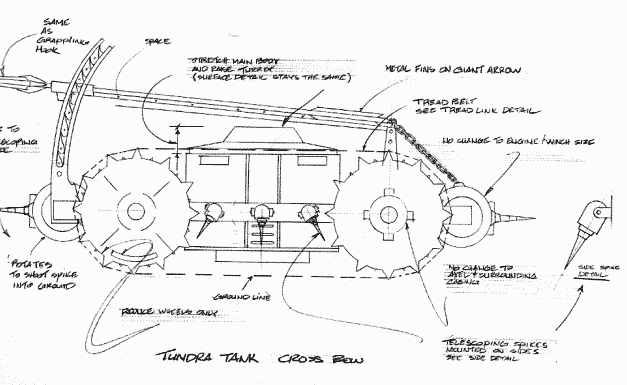 SAME
AS
GRAPPLING
HOOK
SPACE
STRETCH MAIN BODY
AND RAISE TURRET
(SURFACE DETAIL STAYS THE SAME)
METAL FINS ON GIANT ARROW
TREAD BELT
SEE TREAD LINK DETAIL
E TO
NO CHANGE TO ENGINE/WINCH SIZE
ROTATES
TO SHOOT SPIKE
INTO GROUND
REDUCE WHEELS ONLY
GROUND LINE
NO CHANGE TO
AXEL & SURROUNDING
CASING
SIDE SPIKE
DETAIL
TELESCOPING SPIKES
MOUNTED ON SIDES
SEE SIDE DETAIL
TUNDRA TANK CROSS BOW